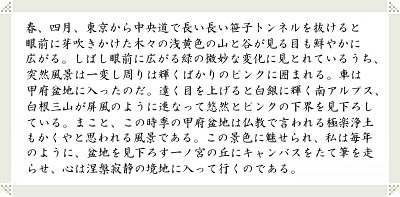 春、四月、東京から中央道で長い長い笹子トンネルを抜けると
眼前に芽吹きかけた木々の浅黄色の山と谷が見る目も鮮やかに
広がる。しばし眼前に広がる緑の微妙な変化に見とれているうち、
突然風景は一変し周りは輝くばかりのピンクに囲まれる。車は
甲府盆地に入ったのだ。遠く目を上げると白銀に輝く南アルプス、
白根三山が屏風のように連なって悠然とピンクの下界を見下ろし
ている。まこと、この時季の甲府盆地は仏教で言われる極楽浄土
もかくやと思われる風景である。この景色に魅せられ、私は毎年
のように、盆地を見下ろす一ノ宮の丘にキャンバスをたて筆を走
らせ、心は涅槃寂静の境地に入って行くのである。